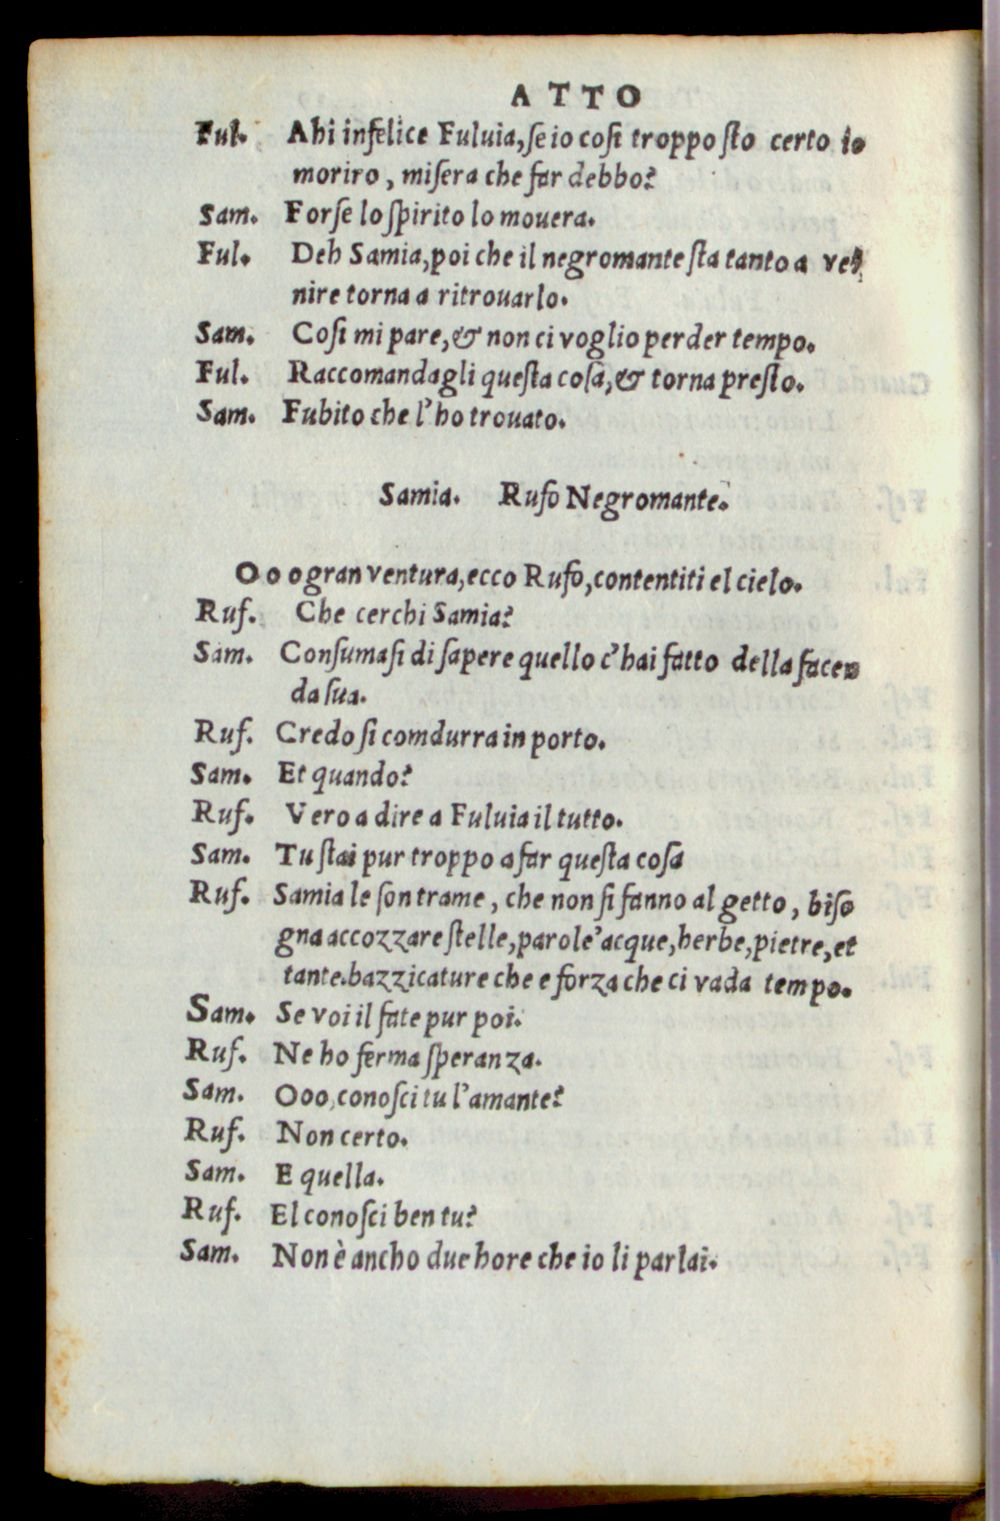 ATTO
Ful. Ahi infelice Fuluia, se io cosi troppo sto certo io
moriro, misera che far debbo?
Sam. Forse lo spirito lo mouera.
Ful. Deh Samia, poi che il negromante sta tanto a ve-
nire torna a ritrouarlo.
Sam. Cosi mi pare, & non ci voglio perder tempo.
Ful. Raccomandagli questa cosa, & torna presto.
Sam. Fubito che l'ho trouato.
Samia. Rufo Negromante.
O o o gran ventura, ecco Rufo, contentiti el cielo.
Ruf. Che cerchi Samia?
Sam. Consumasi di sapere quello c'hai fatto della facen
da sua.
Ruf. Credo si comdurra in porto.
Sam. Et quando?
Ruf. Vero a dire a Fuluia il tutto.
Sam. Tu stai pur troppo a far questa cosa
Ruf. Samia le son trame, che non si fanno al getto, biso
gna accozzare stelle, parole'acque, herbe, pietre, et
tante.bazzicature che e forza che ci vada tempo.
Sam. Se voi il fate pur poi.
Ruf. Ne ho ferma speranza.
Sam. Ooo, conosci tu l'amante?
Ruf. Non certo.
Sam. E quella.
Ruf. El conosci ben tu?
Sam. Non è ancho due hore che io li parlai.